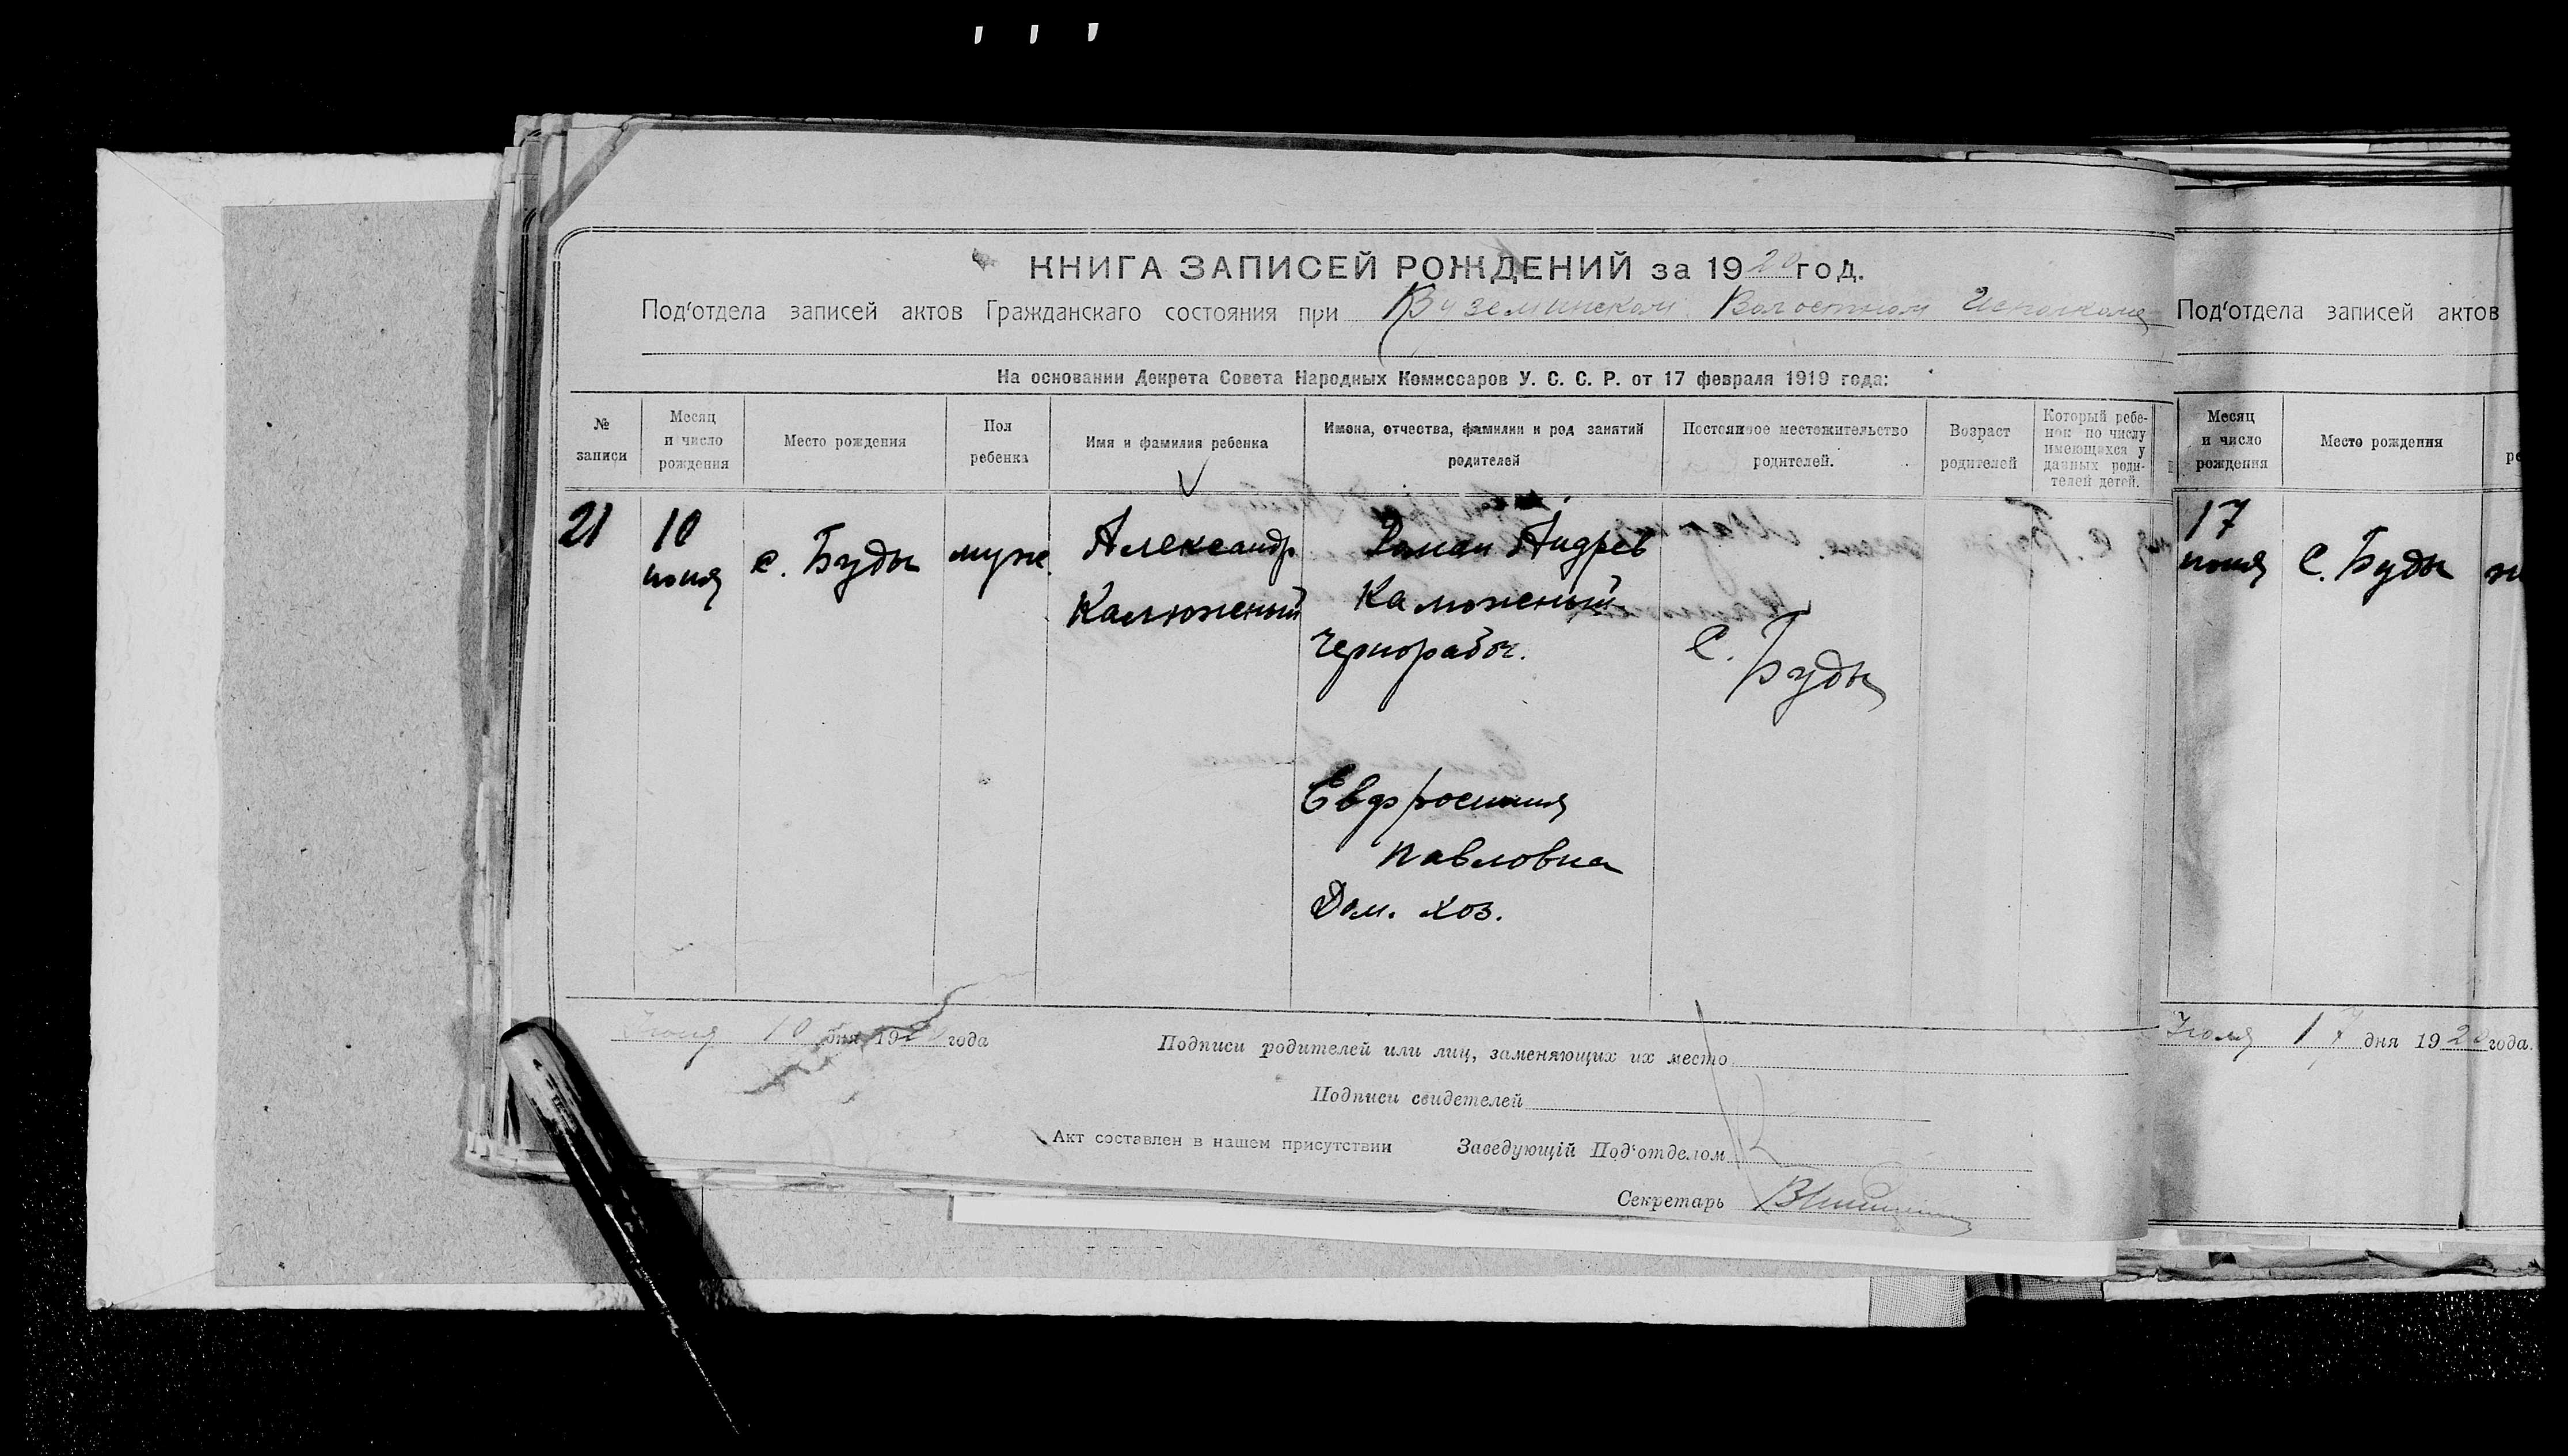 КНИГА ЗАПИСЕЙ РОЖДЕНИЙ за 1920 год.
Под'отдела записей актов Гражданскаго состояния при Куземинском Волостном Исполкоме
На основании Декрета Совета Народных Комиссаров У. С. С. Р. от 17 февраля 1919 года:
№ записи
Месяц и число рождения
Место рождения
Пол ребенка
Имя и фамилия ребенка
Имена, отчества, фамилии и род занятий родителей
Постоянное местожительство родителей.
Возраст родителей
Который ребенок по числу имеющихся у данных родителей детей.
21
10 июня
с. Буды
муж.
Александр
Калюжный
Роман Андреев
Калюжный
Чернорабоч.
с. Буды
Евфросиния
Павловна
Дом. хоз.
Июня 10 дня 1920 года
Подписи родителей или лиц, заменяющих их место
Подписи свидетелей
Акт составлен в нашем присутствии Заведующій Под'отделом
Секретарь
Под'отдела записей актов
Месяц и число рождения
Место рождения
17
июня
с. Буды
17 дня 1920 года.